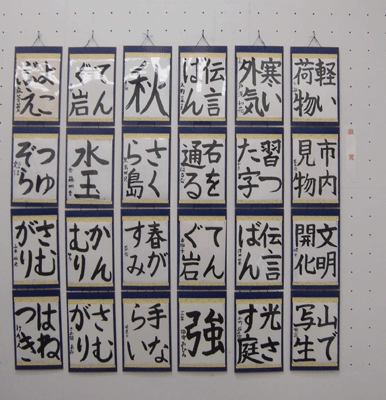 軽い
荷物
市内
見物
文明
開化
山で
写生
寒い
外気
習っ
た字
伝言
ばん
光さ
す庭
伝言
ばん
右を
通る
てん
ぐ岩
強
秋
さく
ら島
春が
すみ
手な
らい
てん
ぐ岩
水玉
かん
むり
さむ
がり
よこ
ぶえ
つゆ
ぞら
さむ
がり
はね
つき